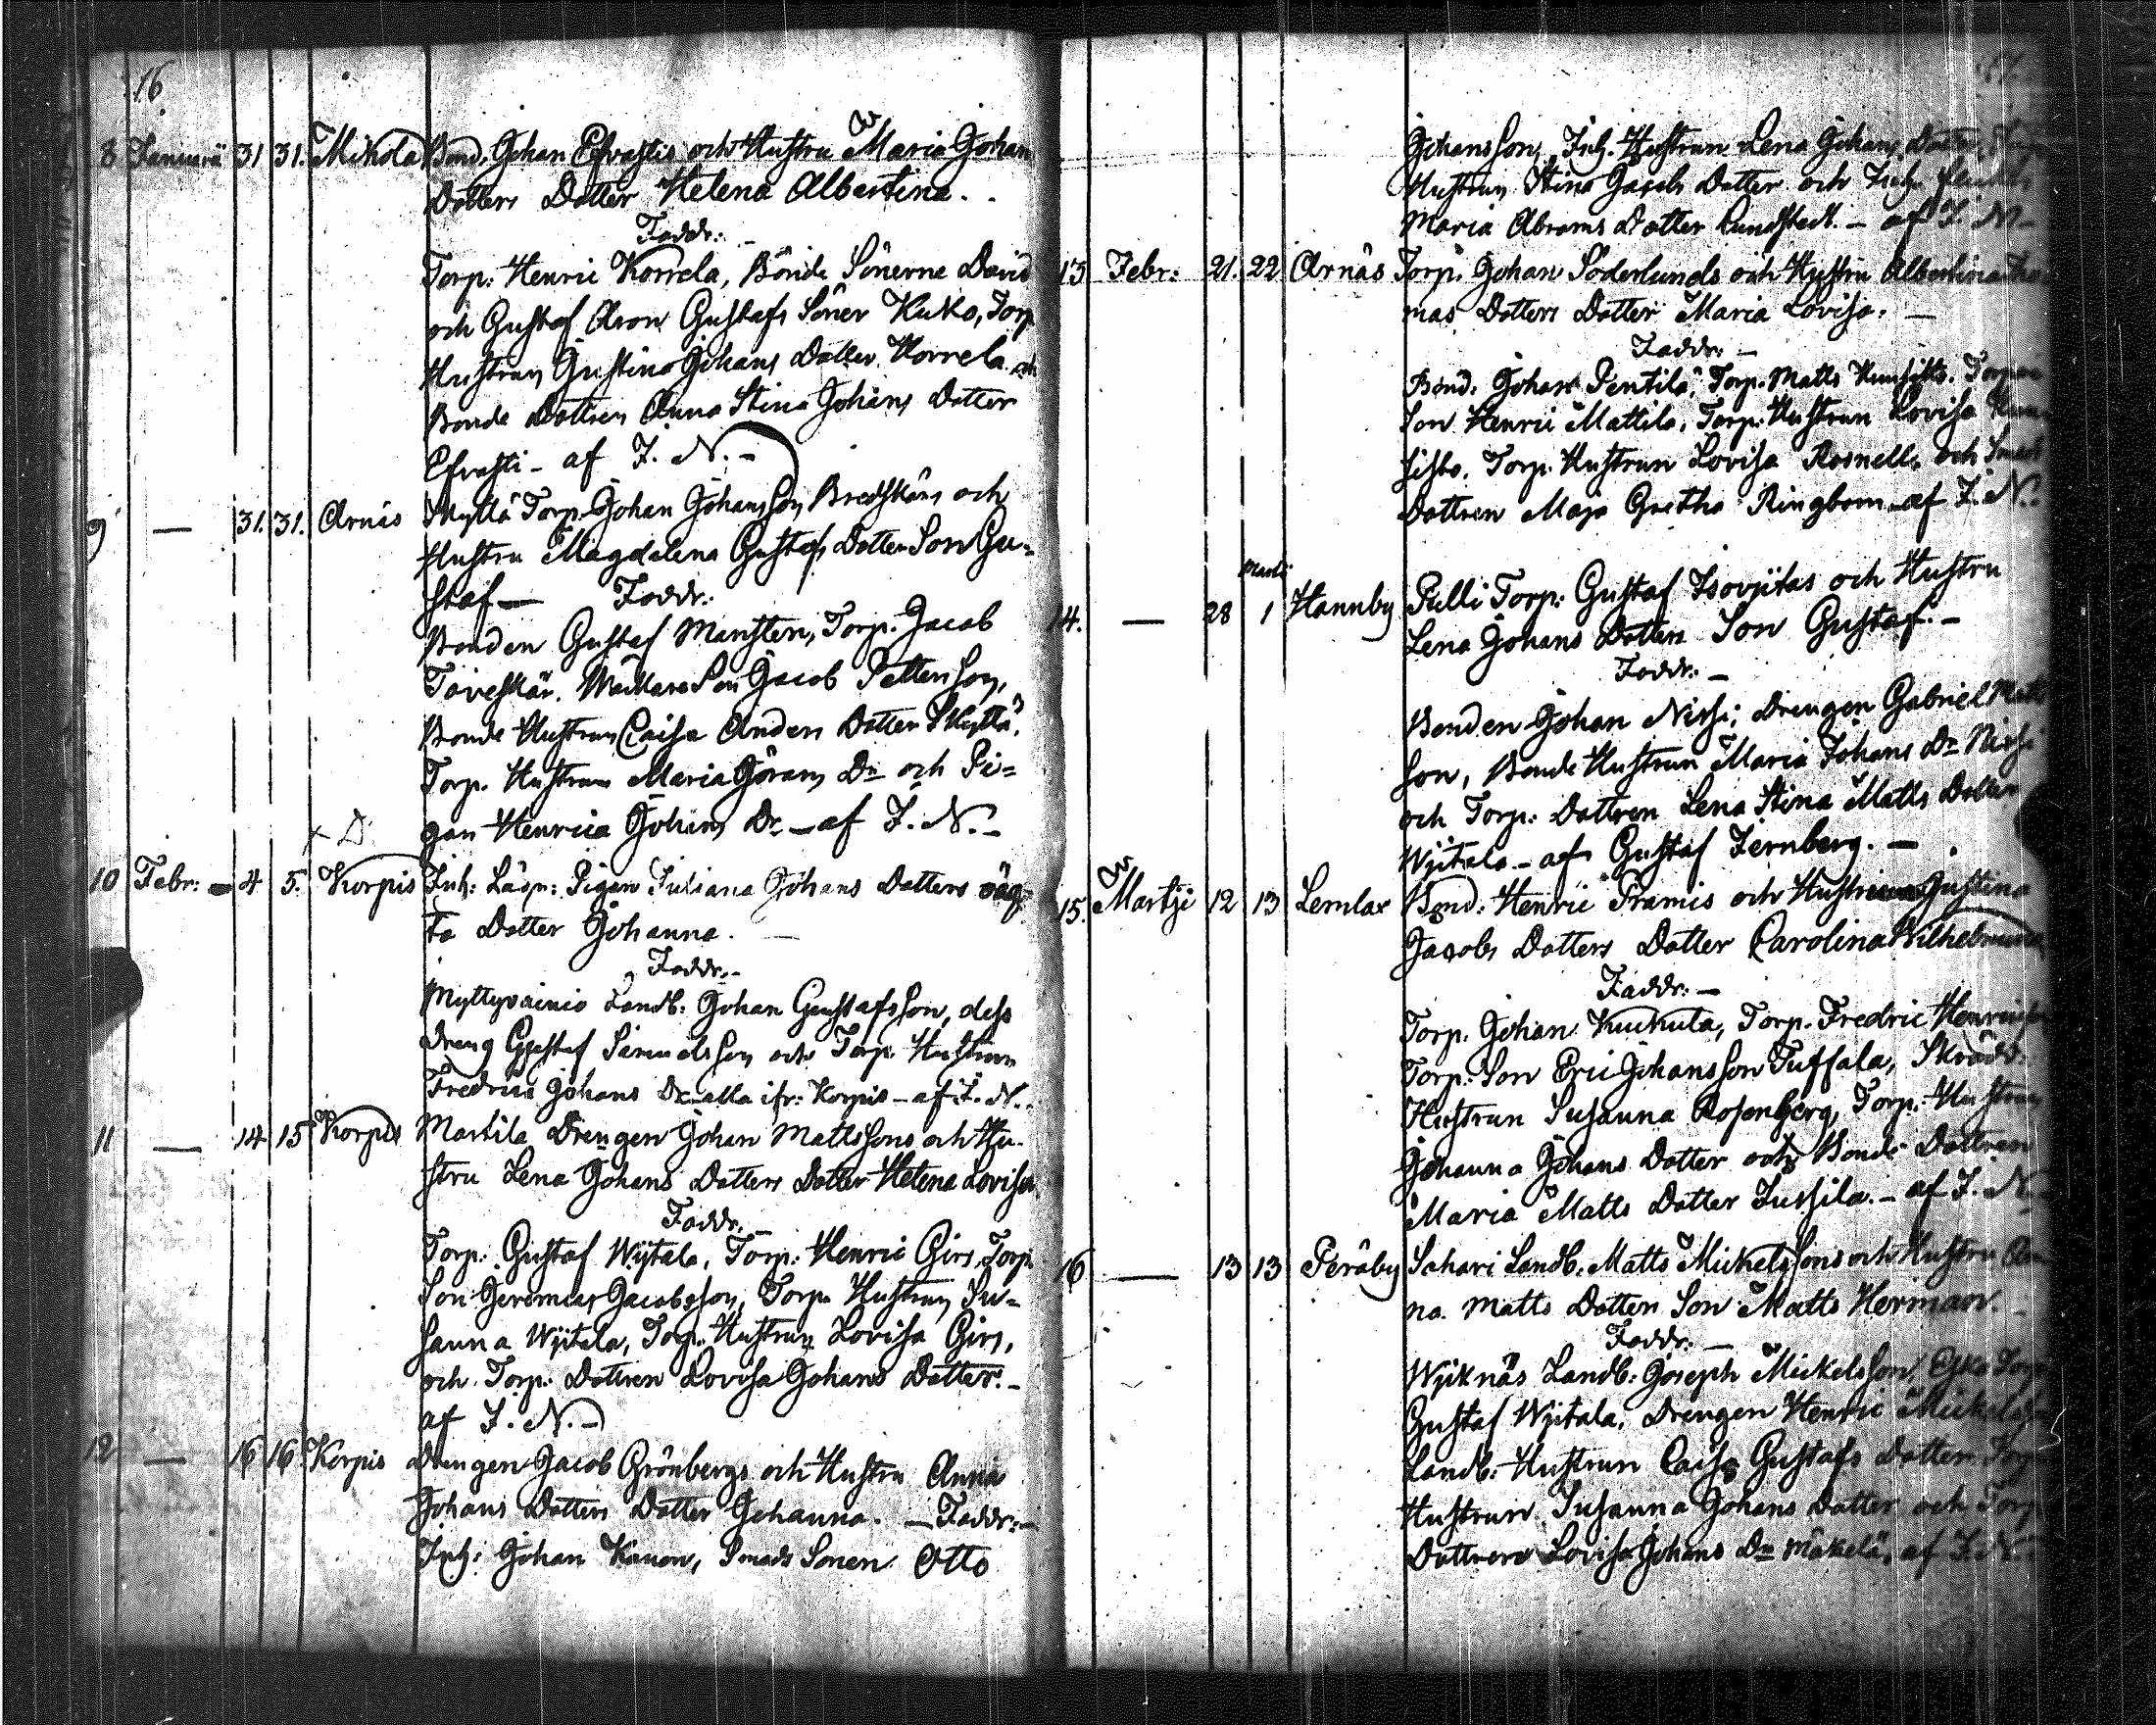 16.
8 Januarii 31 31. Mikola Bond. Johan Efvastis och Hustru Maria Johan
Dotters Dotter Helena Albertina.
Faddr:
Torp: Henric Korrela, Bonde Sönerne David
och Gustaf Aron Gustafs Söner Kuko, Torp
Hustrun Gustina Johans Dotter Korrela och
Bonde Dottren Anna Stina Johans Dotter
Efvasti - af J. N. -
9 — 31. 31. Arnäs Skyttä Torp. Johan Johansson Bredskärs och
Hustru Magdalena Gustafs Dotters Son Gu=
staf — Faddr:
Bonden Gustaf Mansten, Torp. Jacob
Toveskär. Son Jacob Pettersson,
Bonde Hustrun Caisa Anders Dotter Skyttä,
Torp. Hustrun Maria Görans Dr och Pi=
gan Henrica Johans Dr - af J. N. -
+ D.
10 Febr: 4 5. Korpis Inh: Lösn: Pigan Juliana Johans Dotters oäg=
ta Dotter Johanna. —
Faddr. -
Myttyvainio Landb: Johan Gustafsson, dess
Dreng Gustaf Simuelsson och Torp. Hustrun
Fredrica Johans Dr alla ifr: Korpis - af J. N.
11 — 14 15 Korpis Martila Drengen Johan Mattssons och Hu-
stru Lena Johans Dotters Dotter Helena Lovisa
Faddr. —
Torp: Gustaf Wijtala, Torp: Henric Girs, Torp
Son Jeremias Jacobsson, Torp. Hustrun Su=
sanna Wijtala, Torp. Hustrun Lovisa Girs,
och Torp: Dottren Lovisa Johans Dotter. -
af J. N. -
12 — 16 16 Korpis Drengen Jacob Grönbergs och Hustru Anna
Johans Dotters Dotter Johanna. — Faddr: -
Inh: Johan Kanon, Smeds Sonen Otto
Johansson, Inh. Hustrun Lena Johans Dotter,
Hustrun Stina Jacobs Dotter och
Maria Abrams Dotter Lundstedt. - af J. N -
13 Febr: 21. 22 Arnäs Torp. Johan Söderlunds och Hustru Albertina Tho
mas Dotters Dotter Maria Lovisa. —
Faddr: -
Bond: Johan Pentilä, Torp. Matts
Son Henric Mattila, Torp. Hustrun Lovisa
Torp. Hustrun Lovisa Rosnell, och Smeds
Dottren Maja Gretha Ringbom - af J. N.
14. — 28 Martii 1 Hannby Pilli Torp: Gustaf Isovjitas och Hustru
Lena Johans Dotters Son Gustaf. -
Faddr: -
Bonden Johan Nissi, Drengen Gabriel Matts
son, Bonde Hustrun Maria Johans Dr Nissi
och Torp: Dottren Lena Stina Matts Dotter
Wjitala - af Gustaf Jernberg. —
15. Martji 12 13 Lemlax Bond: Henric Framis och Hustru Gustina
Jacobs Dotters Dotter Carolina Wilhelmina
Faddr: -
Torp. Johan Kuckula, Torp. Fredric Henricsson
Torp: Son Eric Johansson Tuffala, Skrädd.
Hustrun Susanna Rosenberg, Torp: Hustrun
Johanna Johans Dotter och Bonde Dottren
Maria Matts Dotter Jussila. - af J. N
16 — 13 13 Peräby Sahari Landb. Matts Mickelssons och Hustru An
na. Matts Dotters Son Matts Herman. -
Faddr: -
Wjiknäs Landb: Joseph Mickelsson, Esko Torp
Gustaf Wjitala, Drengen Henric Mickelsson
Landb: Hustrun Caisa Gustafs Dotter Torp
Hustrun Susanna Johans Dotter och Torp
Dottren Lovisa Johans Dr Mäkelä, af J. N